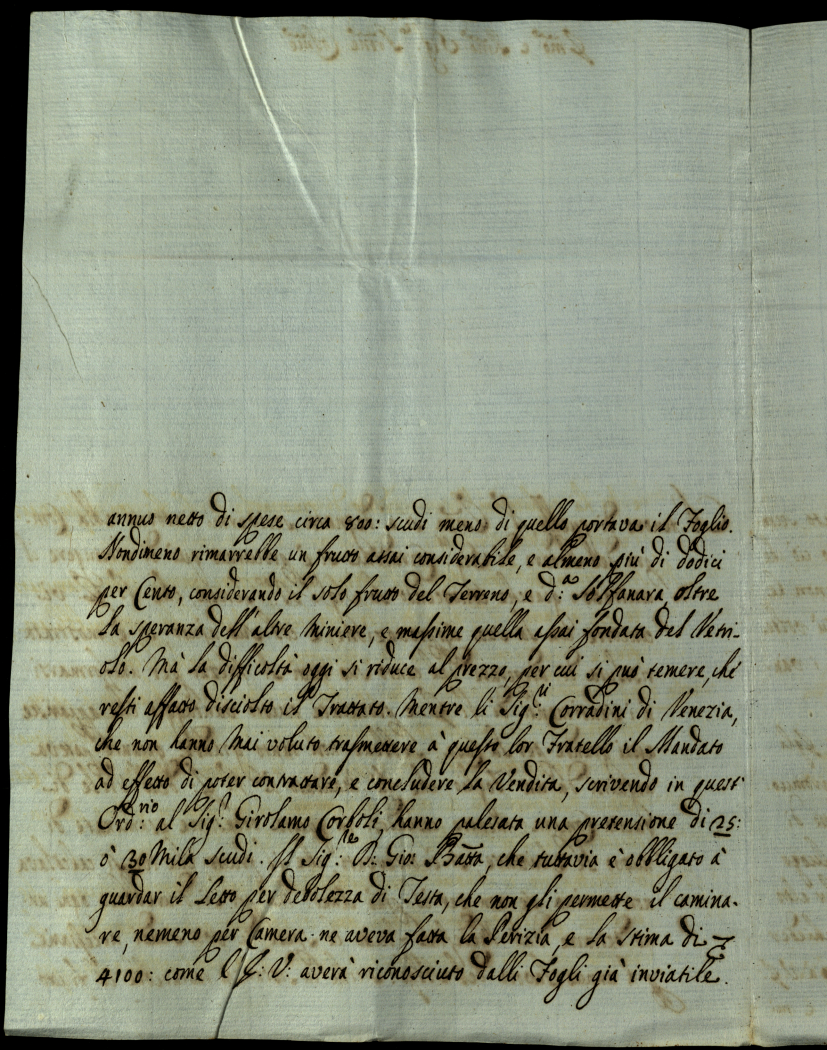 annuo netto di spese circa 800: scudi meno di quello portava il Foglio.
Nondimeno rimarrebbe un frutto assai considerabile, e almeno più di dodici
per Cento, considerando il solo frutto del Terreno, e d.ª Solfanara, oltre
la speranza dell'altre Miniere, e massime quella assai fondata del Vetri-
olo. Mà la difficoltà oggi si riduce al prezzo, per cui si può temere, ché
resti affatto disciolto il Trattato. Mentre li Sig.ri Corradini di Venezia,
che non hanno Mai voluto trasmettere à questo lor Fratello il Mandato
ad effetto di poter contrattare, e concludere la Vendita, scrivendo in quest'
Ord:rio al Sig.r Girolamo Corboli, hanno palesata una pretensione di 25:
ò 30 Mila scudi. Il Sig.re D. Gio: Batta, che tuttavia è obbligato à
guardar il Letto per debolezza di Testa, che non gli permette il camina-
re, nemeno per Camera ne aveva fatta la Perizia, e la stima di
4100: come V: averà riconosciuto dalli Fogli già inviatile.